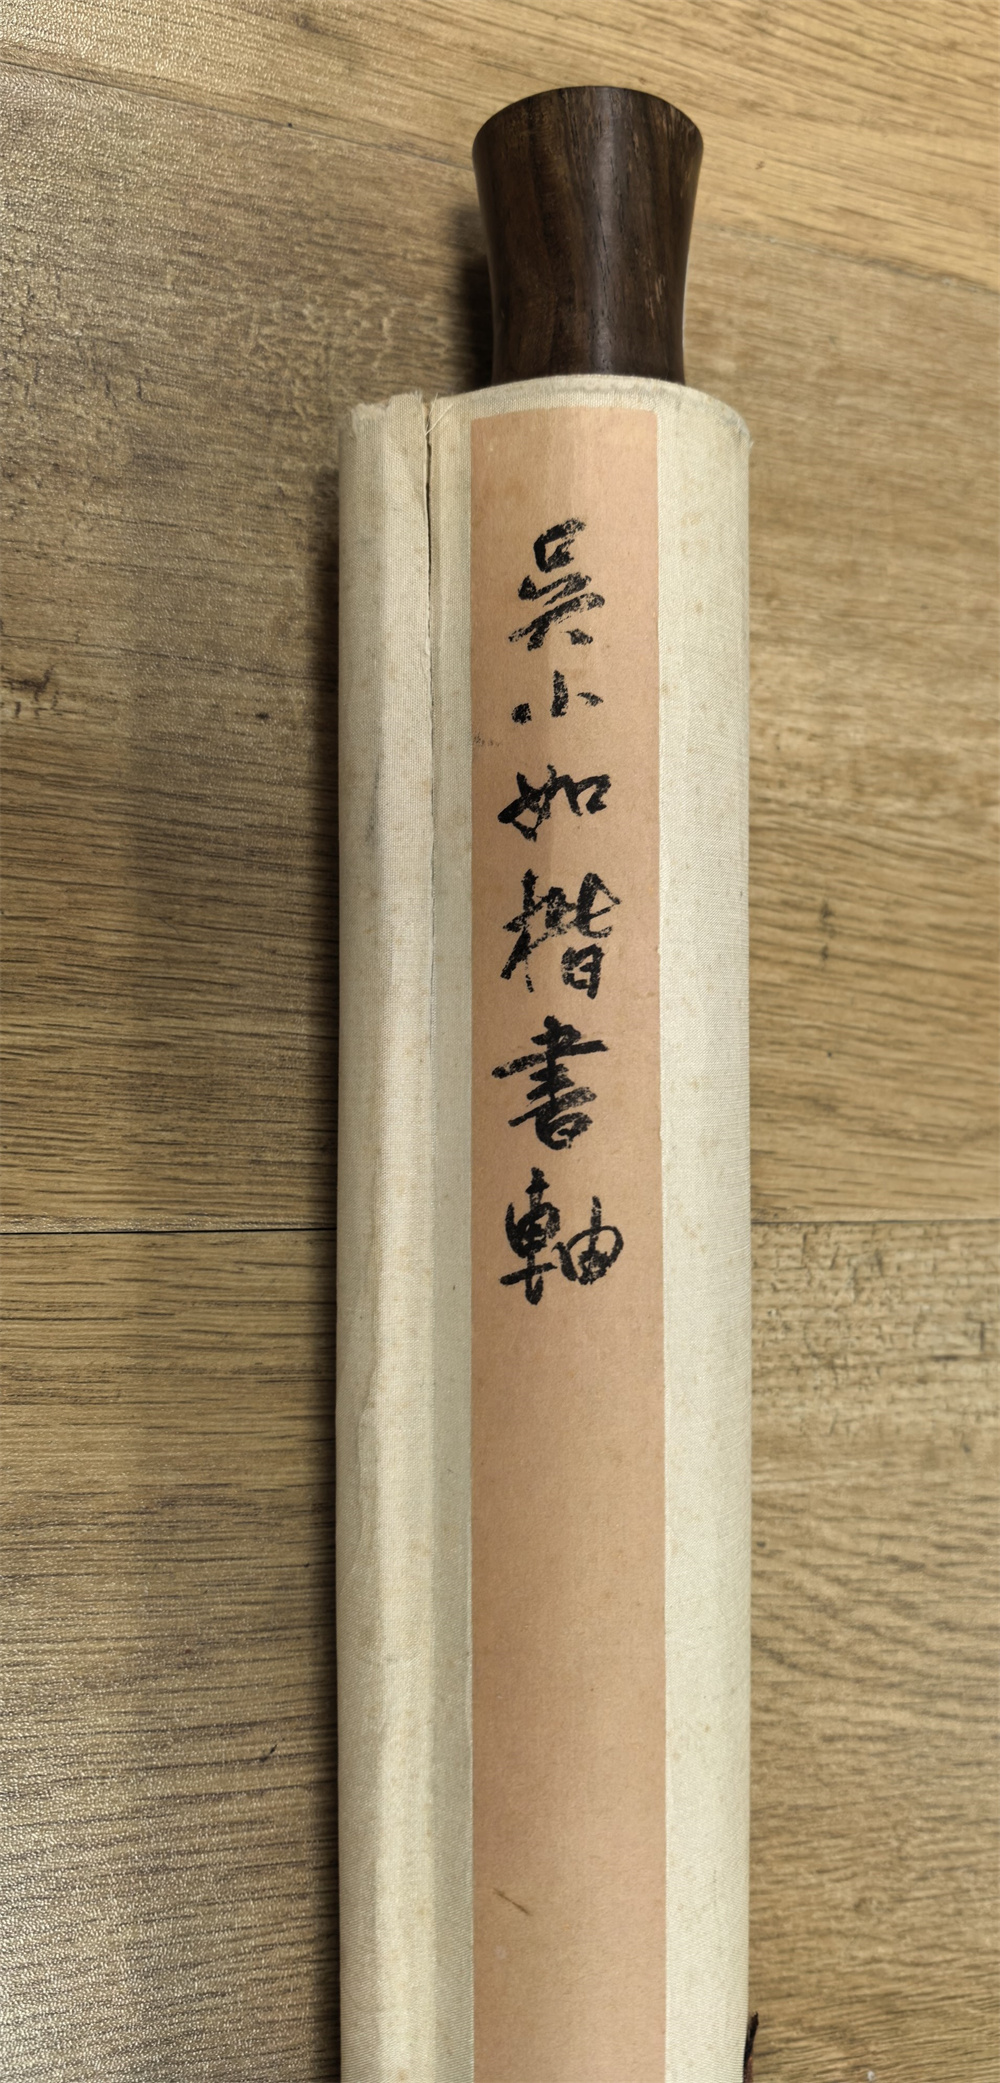 吳小如楷書軸